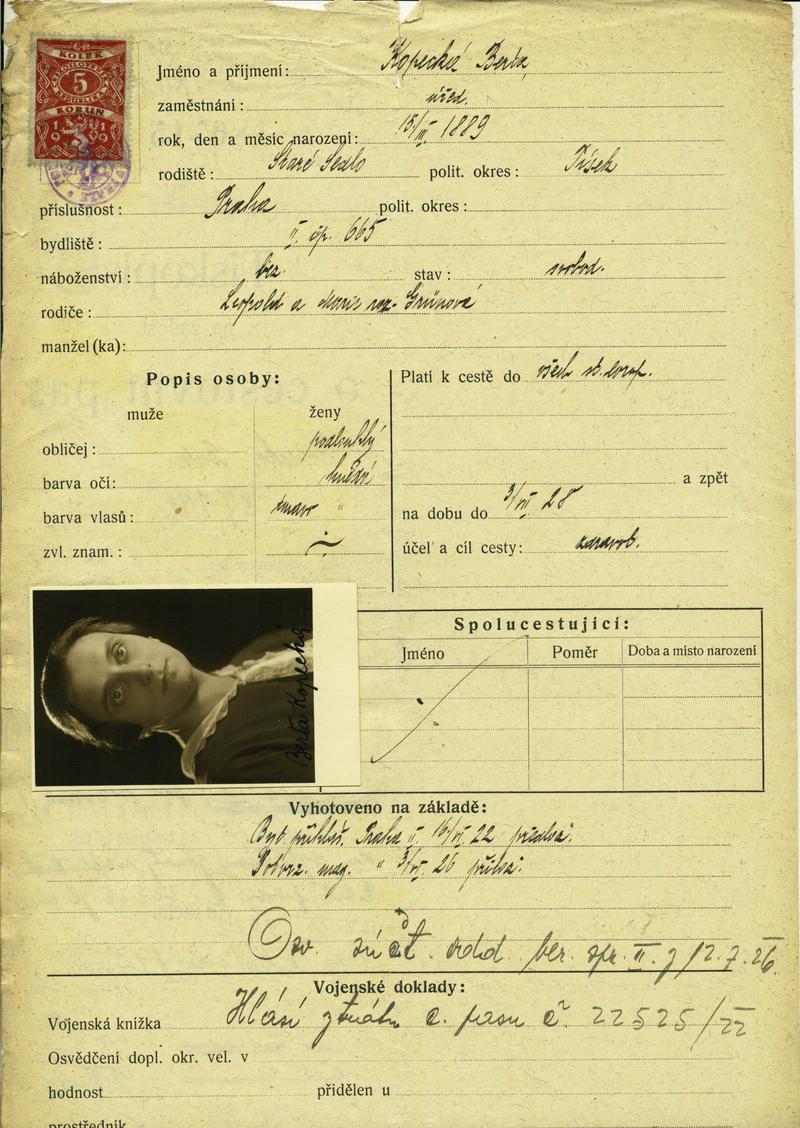 KOLEK
5
KORUN
1919
Jméno a příjmení: Kopecká Berta
zaměstnání: úřed.
rok, den a měsíc narození: 15/III. 1889
rodiště: Staré Sedlo polit. okres: Písek
příslušnost: Praha polit. okres:
bydliště: II čp. 665
náboženství: bez stav: svobod.
rodiče: Leopold a Marie roz. Grünová
manžel (ka):
Popis osoby:
muže ženy
obličej: podlouhlý
barva očí: hnědé
barva vlasů: tmavo "
zvl. znam.:
Platí k cestě do všech st. evrop.
a zpět
na dobu do 3/VII 28
účel a cíl cesty: zdravot.
Berta Kopecká
Spolucestující:
Jméno Poměr Doba a místo narození
Vyhotoveno na základě:
Byt. přihláš. Praha II. 16/VI. 22
Potvrz. mag. " 26
Osv. ber. spr. II. z 12.7.26.
Vojenské doklady:
Vojenská knížka Hlásí ztrátu c. pasu č. 22525/22
Osvědčení dopl. okr. vel. v
hodnost přidělen u
prostředník